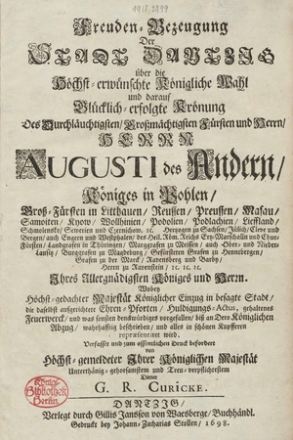 Freuden-Bezeugung
Der
STADT DANTZIG
über die
Höchst-erwünschte Königliche Wahl
und darauf
Glücklich-erfolgte Krönung
Des Durchläuchtigsten/ Großmächtigsten Fürsten und Herrn/
HERRN
AUGUSTI des Andern/
Königes in Pohlen/
Groß-Fürsten in Litthauen/ Reussen/ Preussen/ Masau/
Samoiten/ Kyow/ Wollhinien/ Podolien/ Podlachien/ Lieffland/
Schmolensko/ Severien und Czernichow, ꝛc. Hertzogen zu Sachsen/ Jülich/ Cleve und
Bergen/ auch Engern und Westphalen/ des Heil. Röm. Reichs Ertz-Marschalln und Chur-
Fürsten/ Landgrafen in Thüringen/ Marggrafen zu Meissen/ auch Ober- und Nieder-
Lausitz/ Burggrafen zu Magdeburg/ Gefürsteten Grafen zu Henneberg/
Grafen zu der Marck/ Ravensberg und Barby/
Herrn zu Ravenstein/ ꝛc. ꝛc. ꝛc.
Ihres Allergnädigsten Königes und Herrn.
Wobey
Höchst-gedachter Majestät Königlicher Einzug in besagte Stadt/
die daselbst auffgerichtete Ehren-Pforten/ Huldigungs-Actus, gehaltenes
Feuerwerck/ und was sonsten denckwürdiges vorgefallen/ biß an Dero Königlichen
Abzug/ warhafftig beschrieben/ und alles in schönen Kupffern
repræsentiret wird.
Verfasset und zum offentlichen Druck befordert
von
Höchst-gemeldeter Ihrer Königlichen Majestät
Unterthänig-gehorsamstem und Treu-verpflichtestem
G. R. CURICKE.
DANTZIG/
Verlegt durch Gillis Janssons von Waesberge/ Buchhändl.
Gedruckt bey Johann-Zacharias Stollen/ 1698.
Königl.
Bibliothek
Berlin.